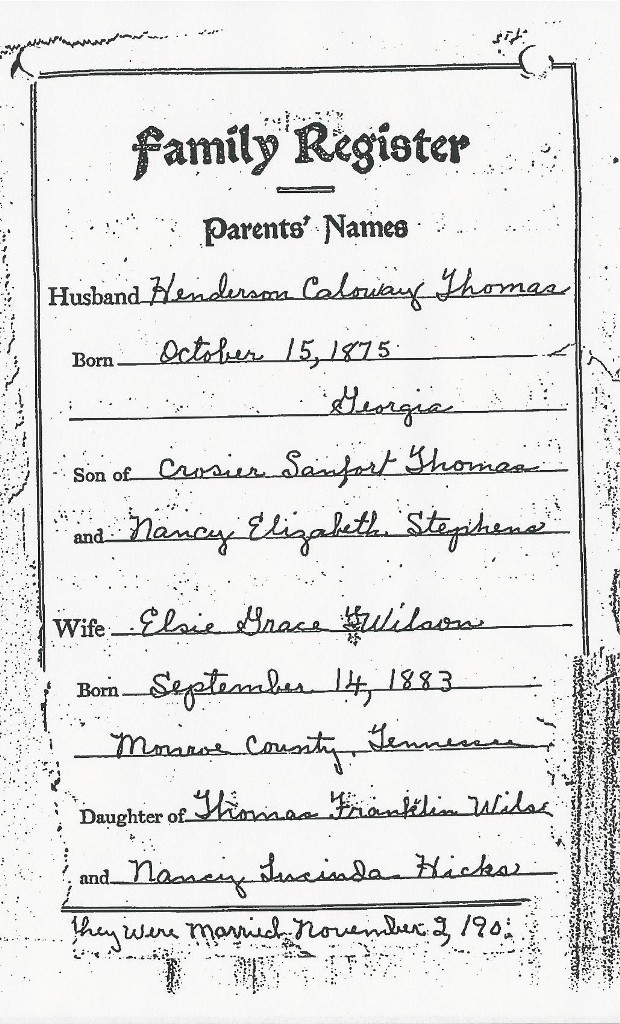 Family Register
Parents' Names
Husband Henderson Caloway Thomas
Born October 15, 1875
Georgia
Son of Crosier Sanfort Thomas
and Nancy Elizabeth Stephens
Wife Elsie Grace Wilson
Born September 14, 1883
Monroe County, Tennessee
Daughter of Thomas Franklin Wils
and Nancy Lucinda Hicks
They were Married November 2, 190